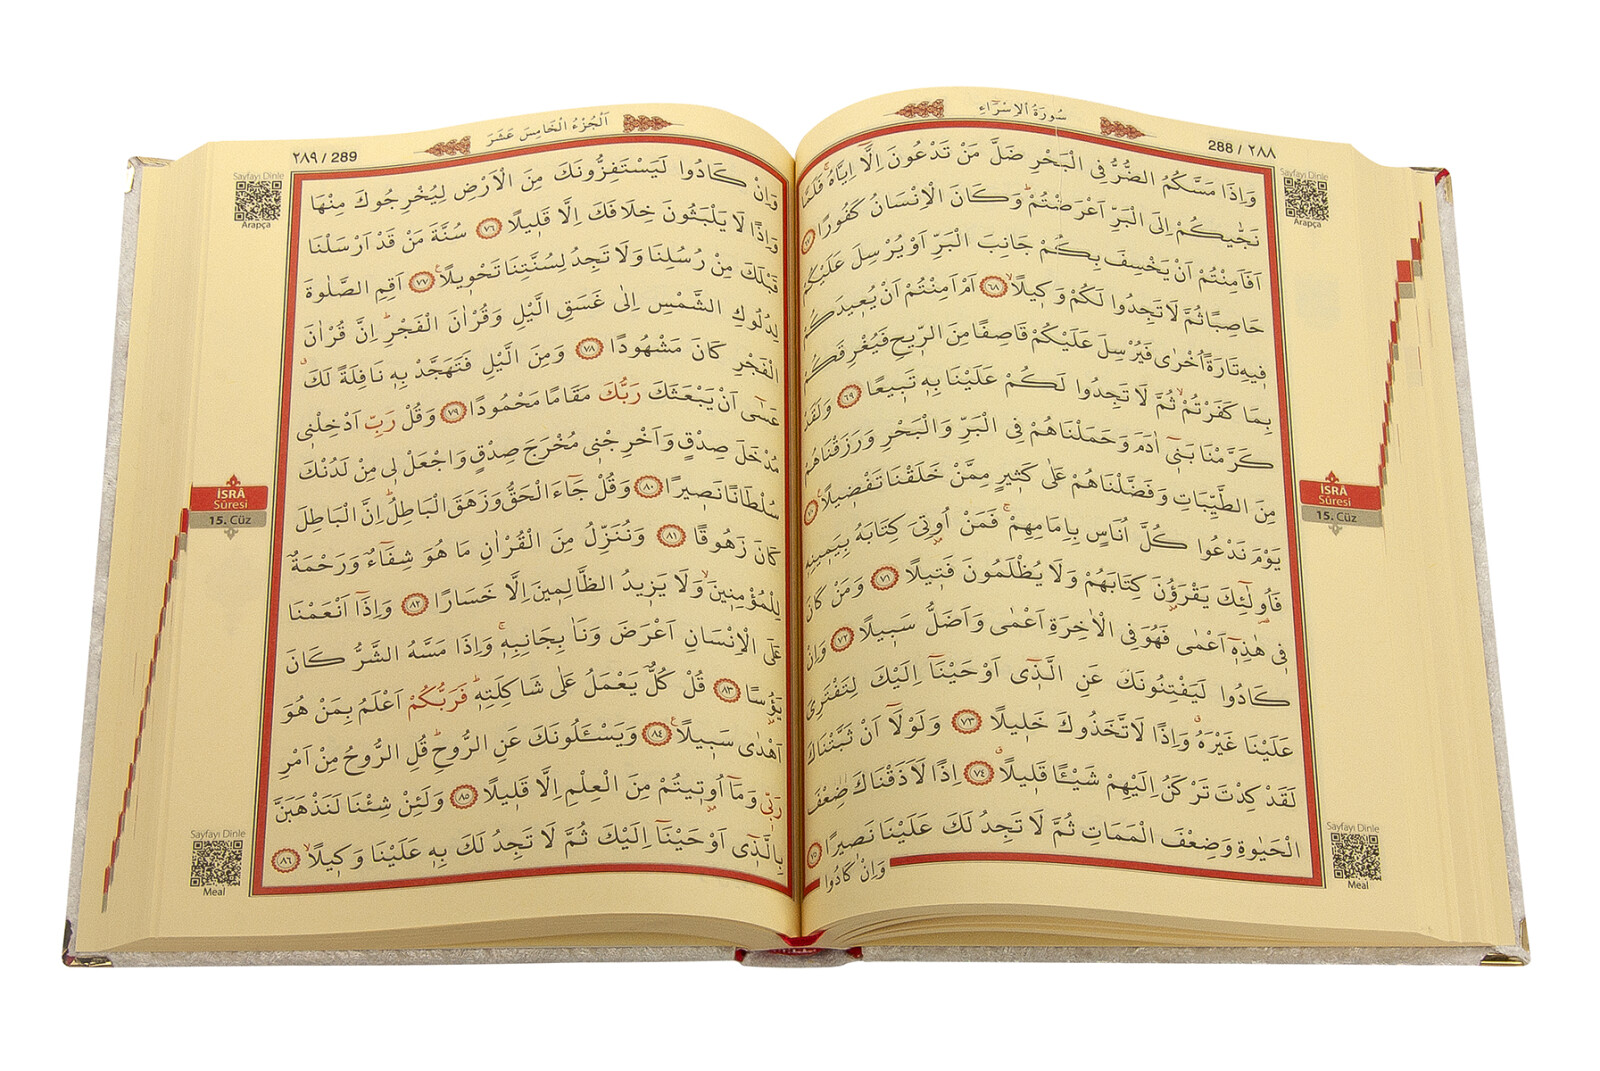 سُورَةُ الْاِسْرَاءِ
288 / ٢٨٨
وَاِذَا مَسَّكُمُ الضُّرُّ فِي الْبَحْرِ ضَلَّ مَنْ تَدْعُونَ اِلَّٓا اِيَّاهُۚ فَلَمَّا
نَجّٰيكُمْ اِلَى الْبَرِّ اَعْرَضْتُمْۜ وَكَانَ الْاِنْسَانُ كَفُورًا ﴿٦٧﴾
اَفَاَمِنْتُمْ اَنْ يَخْسِفَ بِكُمْ جَانِبَ الْبَرِّ اَوْ يُرْسِلَ عَلَيْكُمْ
حَاصِبًا ثُمَّ لَا تَجِدُوا لَكُمْ وَكِيلًاۙ ﴿٦٨﴾ اَمْ اَمِنْتُمْ اَنْ يُعِيدَكُمْ
فِيهِ تَارَةً اُخْرٰى فَيُرْسِلَ عَلَيْكُمْ قَاصِفًا مِنَ الرِّيحِ فَيُغْرِقَكُمْ
بِمَا كَفَرْتُمْۙ ثُمَّ لَا تَجِدُوا لَكُمْ عَلَيْنَا بِهِ تَبِيعًا ﴿٦٩﴾ وَلَقَدْ
كَرَّمْنَا بَنِٓي اٰدَمَ وَحَمَلْنَاهُمْ فِي الْبَرِّ وَالْبَحْرِ وَرَزَقْنَاهُمْ
مِنَ الطَّيِّبَاتِ وَفَضَّلْنَاهُمْ عَلٰى كَثِيرٍ مِمَّنْ خَلَقْنَا تَفْضِيلًاۚ ﴿٧٠﴾
يَوْمَ نَدْعُوا كُلَّ اُنَاسٍ بِاِمَامِهِمْۚ فَمَنْ اُوتِيَ كِتَابَهُ بِيَمِينِهِ
فَاُو۬لٰٓئِكَ يَقْرَؤُ۫نَ كِتَابَهُمْ وَلَا يُظْلَمُونَ فَتِيلًا ﴿٧١﴾ وَمَنْ كَانَ
فِي هٰذِهِٓ اَعْمٰى فَهُوَ فِي الْاٰخِرَةِ اَعْمٰى وَاَضَلُّ سَبِيلًا ﴿٧٢﴾ وَاِنْ
كَادُوا لَيَفْتِنُونَكَ عَنِ الَّذِٓي اَوْحَيْنَٓا اِلَيْكَ لِتَفْتَرِيَ
عَلَيْنَا غَيْرَهُۗ وَاِذًا لَاتَّخَذُوكَ خَلِيلًا ﴿٧٣﴾ وَلَوْلَٓا اَنْ ثَبَّتْنَاكَ
لَقَدْ كِدْتَ تَرْكَنُ اِلَيْهِمْ شَيْـًٔا قَلِيلًاۗ ﴿٧٤﴾ اِذًا لَاَذَقْنَاكَ ضِعْفَ
الْحَيٰوةِ وَضِعْفَ الْمَمَاتِ ثُمَّ لَا تَجِدُ لَكَ عَلَيْنَا نَصِيرًا ﴿٧٥﴾
وَاِنْ كَادُوا
Sayfayı Dinle
Arapça
İSRÂ
Sûresi
15. Cüz
Sayfayı Dinle
Meal
اَلْجُزْءُ الْخَامِسَ عَشَرَ
٢٨٩ / 289
وَاِنْ كَادُوا لَيَسْتَفِزُّونَكَ مِنَ الْاَرْضِ لِيُخْرِجُوكَ مِنْهَا
وَاِذًا لَا يَلْبَثُونَ خِلَافَكَ اِلَّا قَلِيلًا ﴿٧٦﴾ سُنَّةَ مَنْ قَدْ اَرْسَلْنَا
قَبْلَكَ مِنْ رُسُلِنَا وَلَا تَجِدُ لِسُنَّتِنَا تَحْوِيلًا۟ ﴿٧٧﴾ اَقِمِ الصَّلٰوةَ
لِدُلُوكِ الشَّمْسِ اِلٰى غَسَقِ الَّيْلِ وَقُرْاٰنَ الْفَجْرِۜ اِنَّ قُرْاٰنَ
الْفَجْرِ كَانَ مَشْهُودًا ﴿٧٨﴾ وَمِنَ الَّيْلِ فَتَهَجَّدْ بِهِ نَافِلَةً لَكَۗ
عَسٰٓى اَنْ يَبْعَثَكَ رَبُّكَ مَقَامًا مَحْمُودًا ﴿٧٩﴾ وَقُلْ رَبِّ اَدْخِلْنِي
مُدْخَلَ صِدْقٍ وَاَخْرِجْنِي مُخْرَجَ صِدْقٍ وَاجْعَلْ لِي مِنْ لَدُنْكَ
سُلْطَانًا نَصِيرًا ﴿٨٠﴾ وَقُلْ جَٓاءَ الْحَقُّ وَزَهَقَ الْبَاطِلُۜ اِنَّ الْبَاطِلَ
كَانَ زَهُوقًا ﴿٨١﴾ وَنُنَزِّلُ مِنَ الْقُرْاٰنِ مَا هُوَ شِفَٓاءٌ وَرَحْمَةٌ
لِلْمُؤْمِنِينَۙ وَلَا يَزِيدُ الظَّالِمِينَ اِلَّا خَسَارًا ﴿٨٢﴾ وَاِذَٓا اَنْعَمْنَا
عَلَى الْاِنْسَانِ اَعْرَضَ وَنَاٰ بِجَانِبِهِۚ وَاِذَا مَسَّهُ الشَّرُّ كَانَ
يَؤُ۫سًا ﴿٨٣﴾ قُلْ كُلٌّ يَعْمَلُ عَلٰى شَاكِلَتِهِۜ فَرَبُّكُمْ اَعْلَمُ بِمَنْ هُوَ
اَهْدٰى سَبِيلًا۟ ﴿٨٤﴾ وَيَسْـَٔلُونَكَ عَنِ الرُّوحِۜ قُلِ الرُّوحُ مِنْ اَمْرِ
رَبِّي وَمَٓا اُو۫تِيتُمْ مِنَ الْعِلْمِ اِلَّا قَلِيلًا ﴿٨٥﴾ وَلَئِنْ شِئْنَا لَنَذْهَبَنَّ
بِالَّذِٓي اَوْحَيْنَٓا اِلَيْكَ ثُمَّ لَا تَجِدُ لَكَ بِهِ عَلَيْنَا وَكِيلًاۙ ﴿٨٦﴾
Sayfayı Dinle
Arapça
İSRÂ
Sûresi
15. Cüz
Sayfayı Dinle
Meal